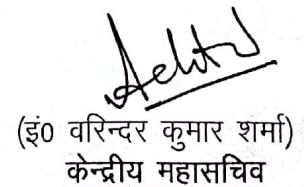 (इं० वरिन्दर कुमार शर्मा)
केन्द्रीय महासचिव